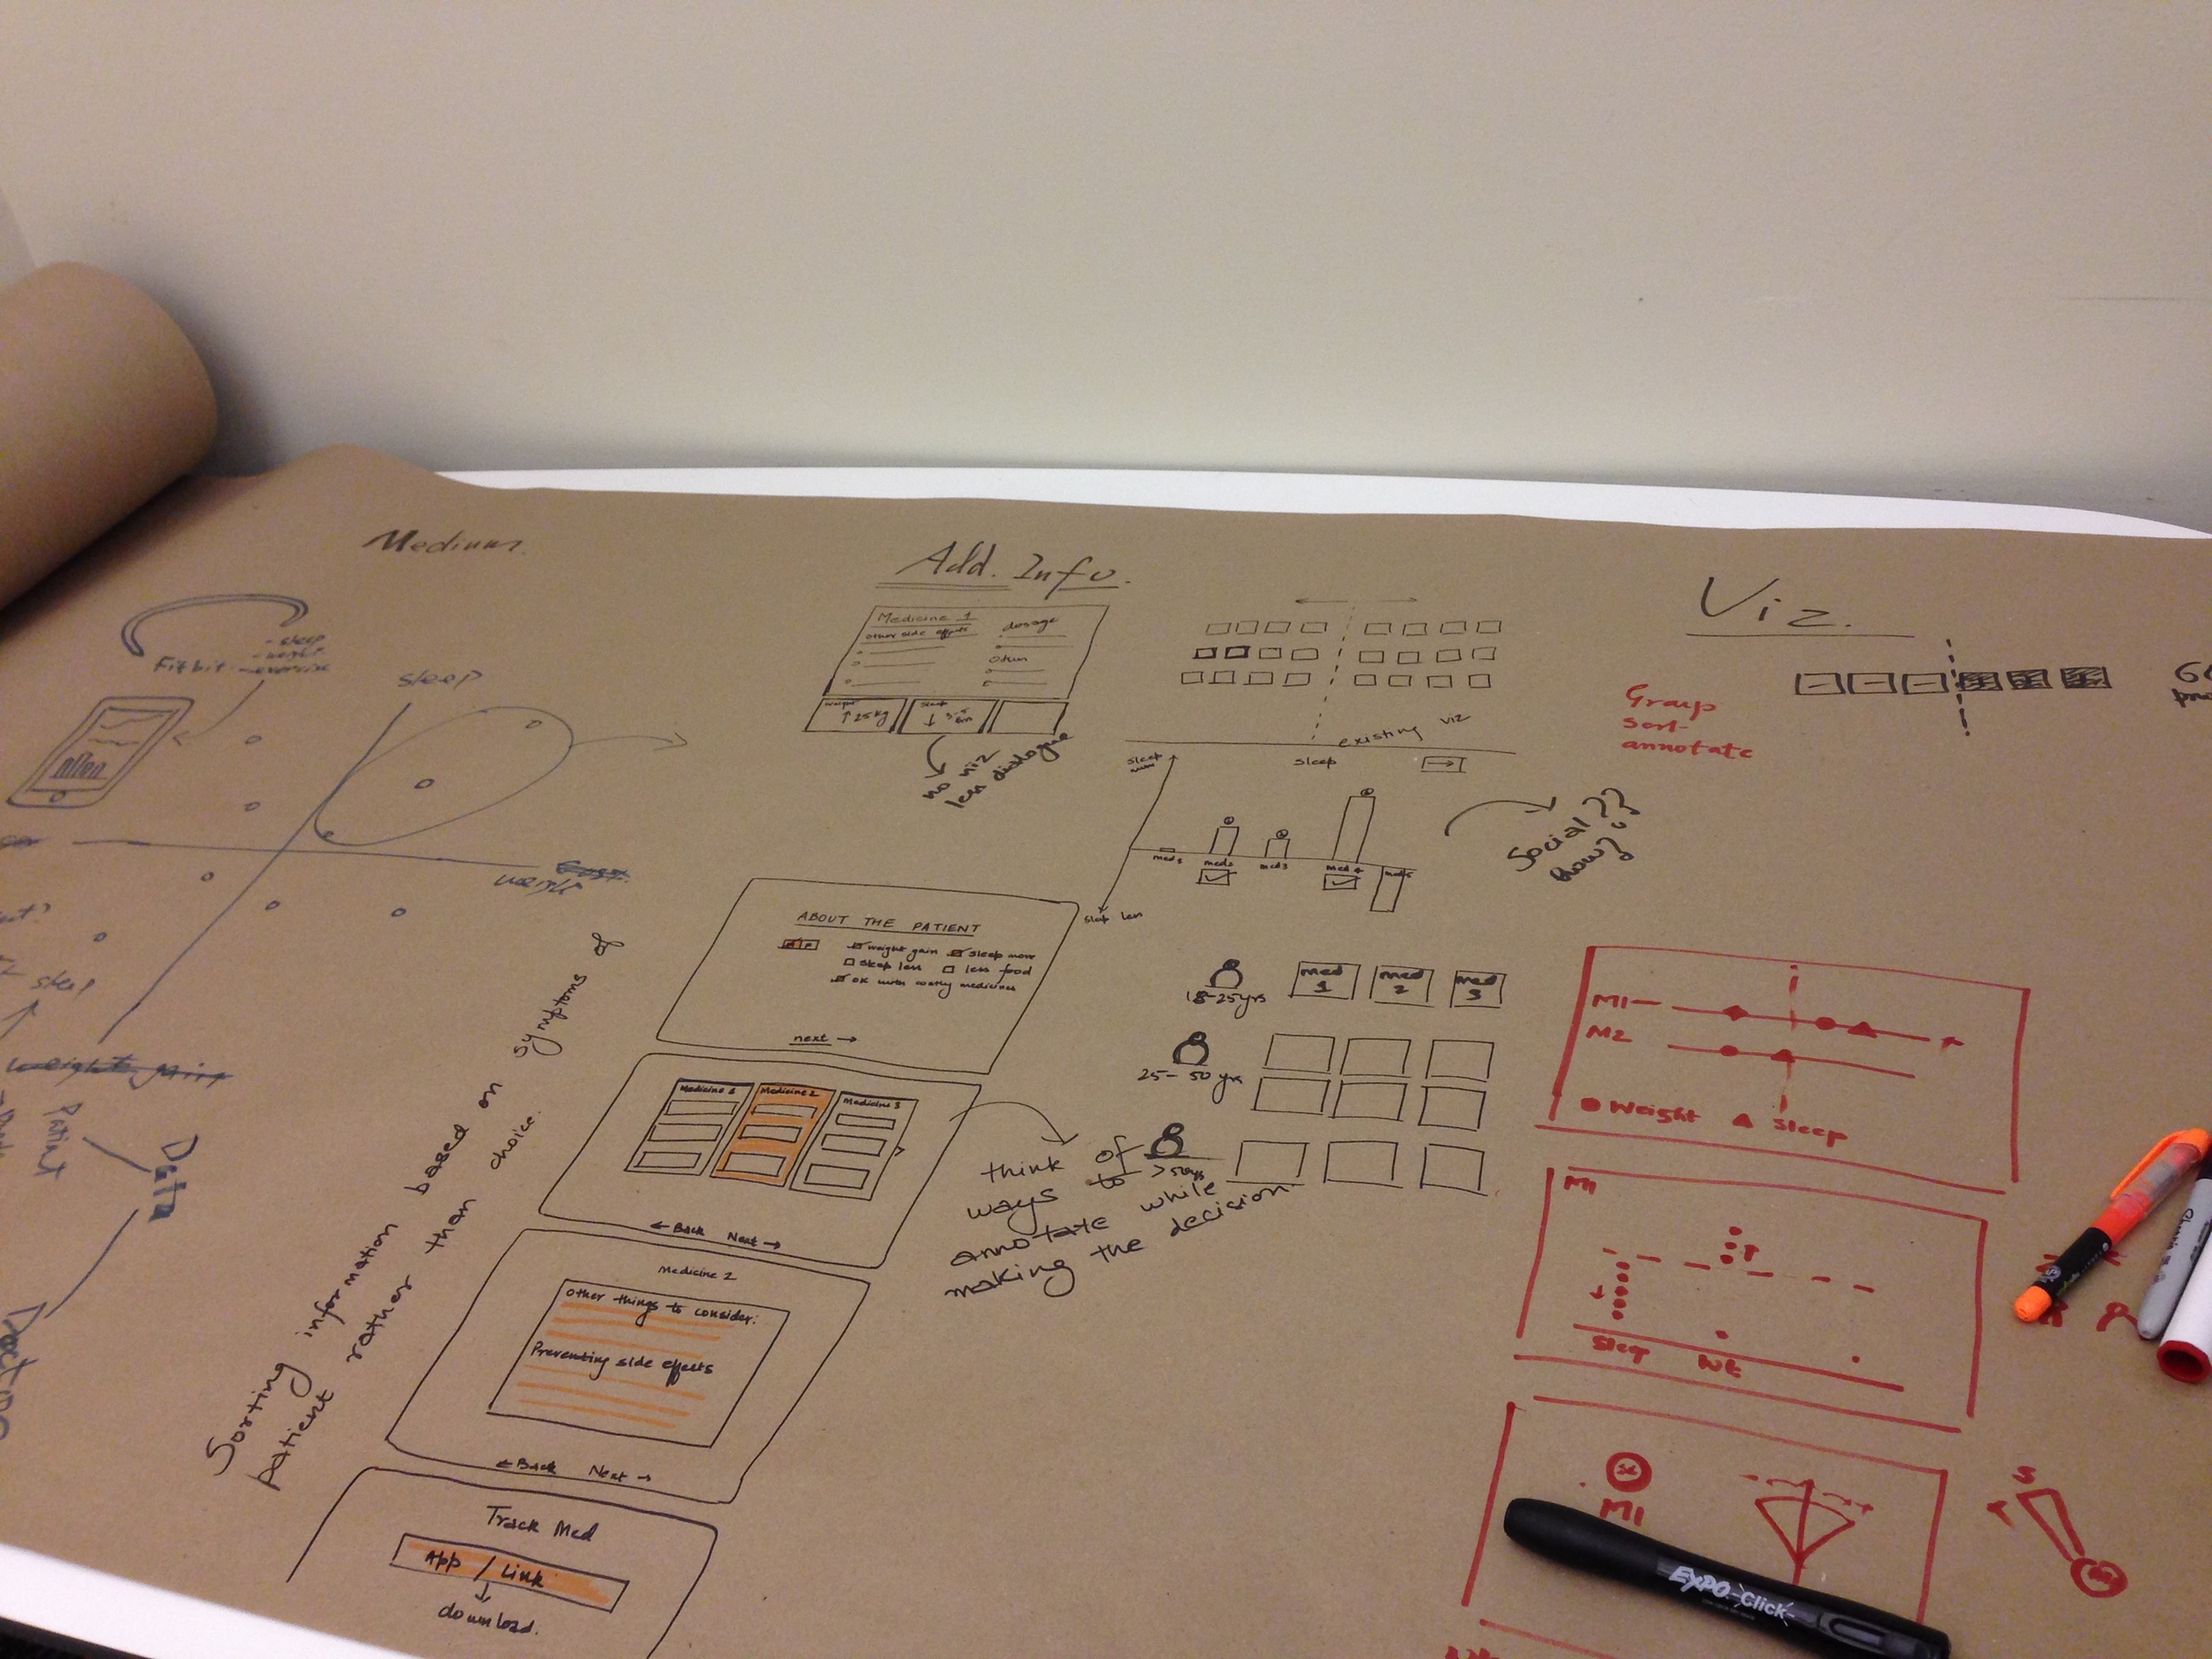 Medium
Fitbit
- sleep
- weight
- exercise
sleep
weight
sleep
weight gain
Patient
Data
Sorting information based on symptoms of
patient rather than choice.
Add. Info.
Medicine 1
other side effects
dosage
other
weight
↑ 25 kg
no viz
less dialogue
existing viz
sleep
sleep
med 2
med 3
med 4
Social??
how??
ABOUT THE PATIENT
weight gain
sleep more
sleep less
less food
ok with costly medicines
next →
Medicine 1
Medicine 2
Medicine 3
← Back Next →
think of
ways to
annotate while
making the decision
Medicine 2
Other things to consider:
Preventing side effects
← Back Next →
Track Med
App / Link
download.
18-25 yrs
med 1
med 2
med 3
25 - 50 yrs
> 50 yrs
Viz.
Group
sort
annotate
M1
M2
Weight
Sleep
M1
Sleep
Wt
M1
S
EXPO Click